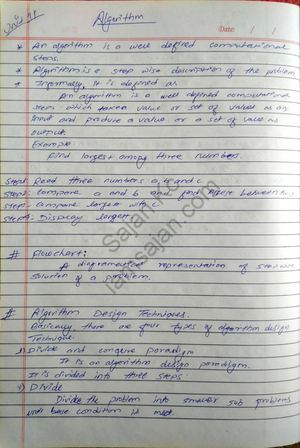 Unit 91
Algorithm
Date: / /
* An algorithm is a well defined computational
steps.
* Algorithm is a step wise description of the problem
* Informally, it is defined as
An algorithm is a well defined computational
steps which takes value or set of values as an
input and produce a value or a set of value as
output.
Example
find largest among three numbers.
Step1: Read three numbers a, b and c
Step2: compare a and b and find largest between two
Step: compare largest with c
Step4: Display largest
# Flowchart:
A diagrammatical representation of stepwise
solution of a problem.
# Algorithm Design Techniques.
Basically there are four types of algorithm design
Technique.
1) Divide and conquere paradigm
It is an algorithm design paradigm.
It is divided into three steps
1) Divide
Divide the problem into smaller sub problems
until base condition is meet.